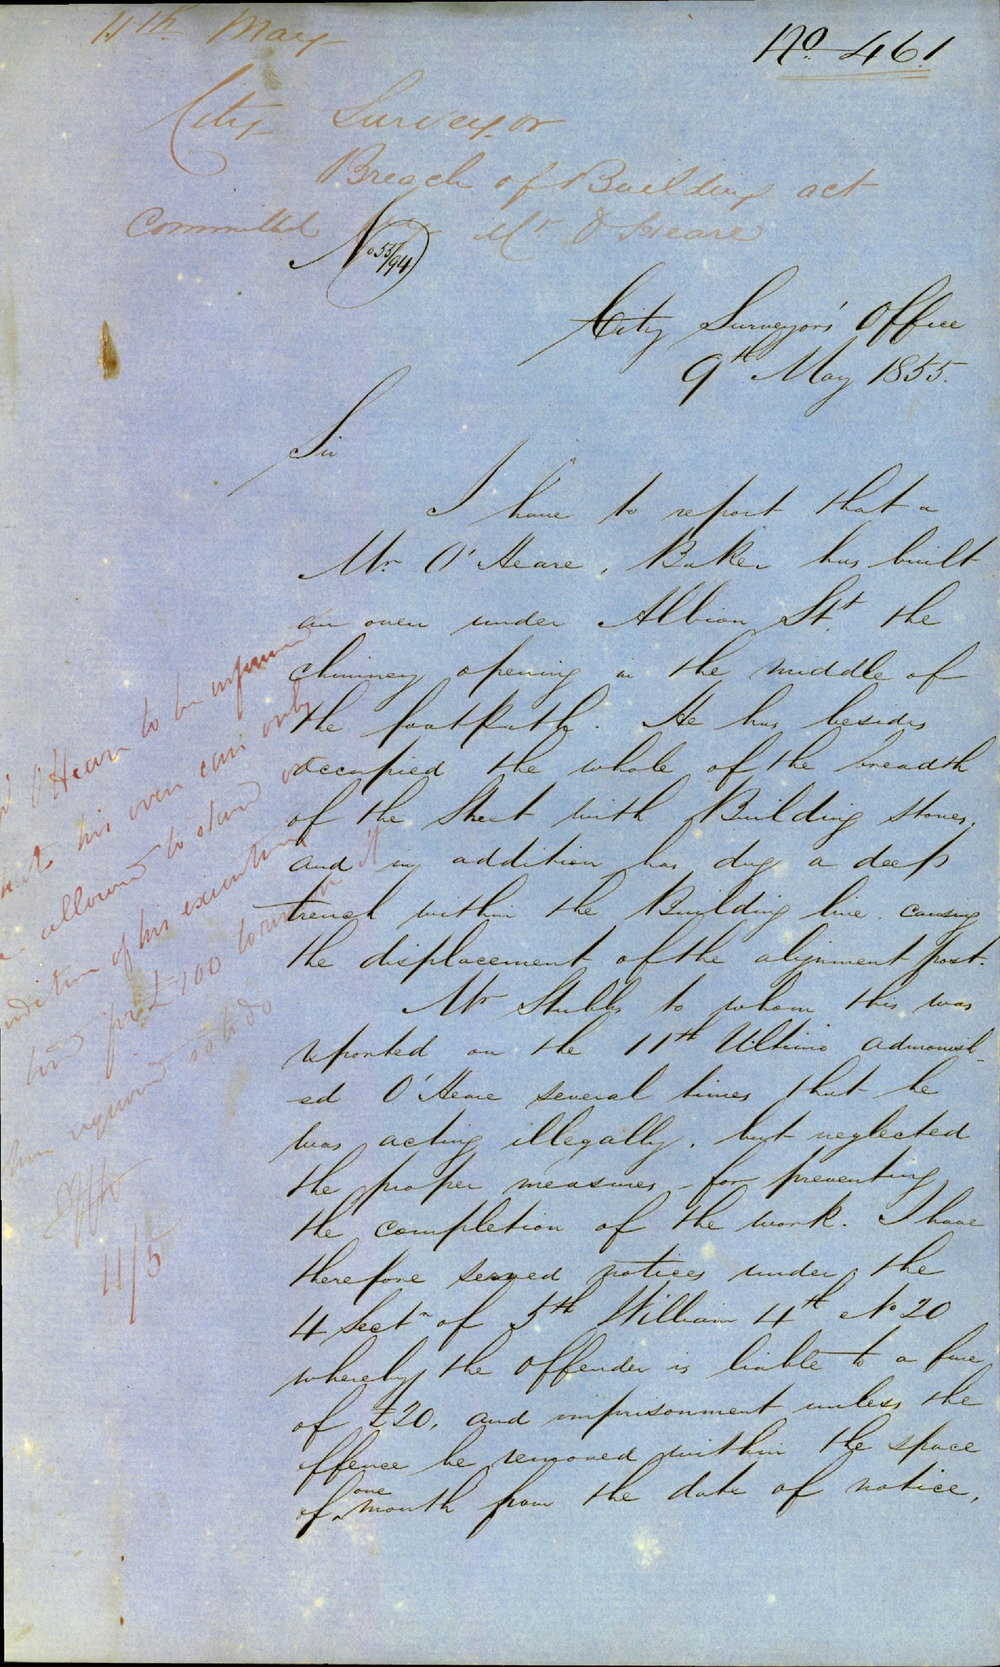 11th May
No 461
City Surveyor
Breach of Building act
Committed Mr O'Heare
No 55/94
City Surveyor's Office
9th May 1855.
Sir
I have to report that a
Mr. O'Heare, Baker has built
an oven under Albion St. the
chimney opening in the middle of
the footpath. He has besides
occupied the whole of the breadth
of the Street with Building stones,
and in addition has dug a deep
trench within the Building line. causing
the displacement of the alignment post.
Mr Stubbs to whom this was
reported on the 11th Ultimo admonish-
-ed O'Heare several times that he
was acting illegally, but neglected
the proper measures - for preventing
the completion of the work. I have
therefore served notices under the
4 Sectn of 5th William 4th No 20
whereby the offender is liable to a fine
of £20, and imprisonment unless the
offence be removed within the space
of one month from the date of notice,
O'Hearn to be informed
his oven can only
allowed to stand on
condition of his executing
bond for £100 to remove it
when required so to do
11/5